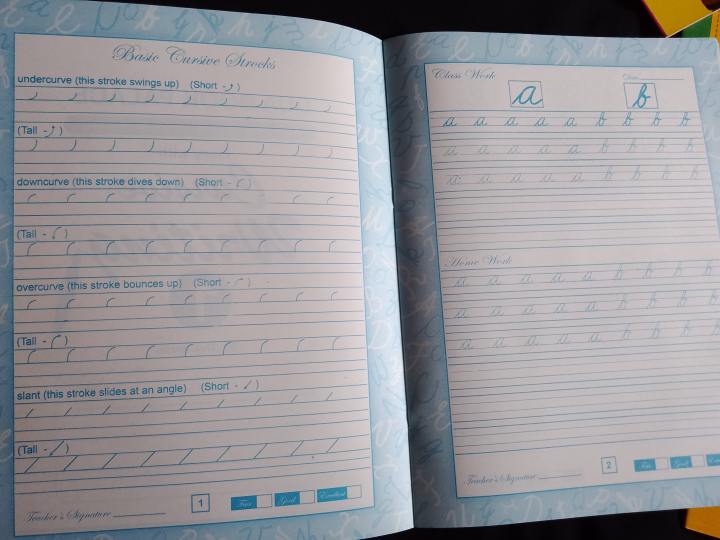 Basic Cursive Strocks
undercurve (this stroke swings up) (Short - )
(Tall - )
downcurve (this stroke dives down) (Short - )
(Tall - )
overcurve (this stroke bounces up) (Short - )
(Tall - )
slant (this stroke slides at an angle) (Short - )
(Tall - )
Teacher's Signature
1
Fair Good Excellent
Class Work
a b
a a a a a b b b b
a a a a a b b b b
a a a a a b b b b
Home Work
a a a a a b b b b
a a a a a b b b b
a a a a a b b b b
Teacher's Signature
2
Fair Good